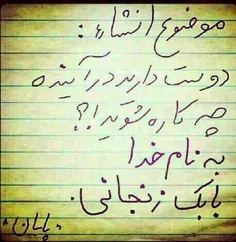 موضوع انشاء:
دوست دارید در آینده
چه کاره شوید!؟
به نام خدا
بابک زنجانی.
پایان.